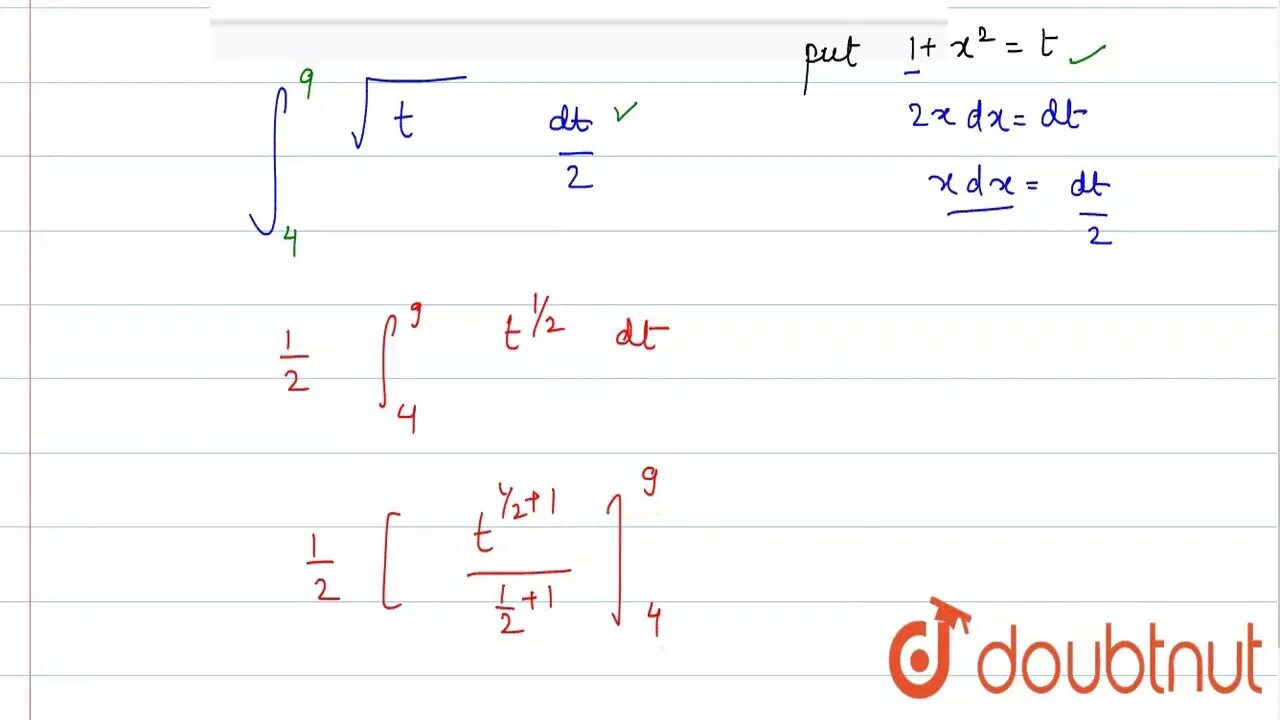 put 1 + x² = t ✓
∫₄⁹ √t dt/2 ✓
2x dx = dt
x dx = dt/2
1/2 ∫₄⁹ t^1/2 dt
1/2 [ t^1/2+1 / 1/2+1 ]₄⁹
doubtnut